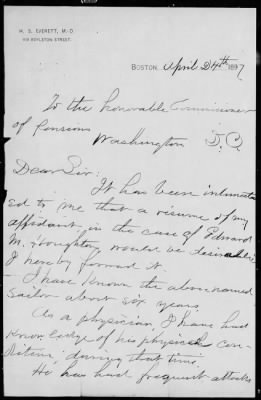 H. S. EVERETT, M.D.
BOYLSTON STREET.
BOSTON, April 24th 1897
To the honorable Commissioner
of Pensions
Washington D.C.
Dear Sir:
It has been intimat
ed to me that a resume of my
affidavit, in the case of Edward
M. Houghton, would be desirable
I hereby forward it.
I have known the above named
sailor about six years.
As a physician, I have had
knowledge of his physical con-
dition during that time.
He has had frequent attacks